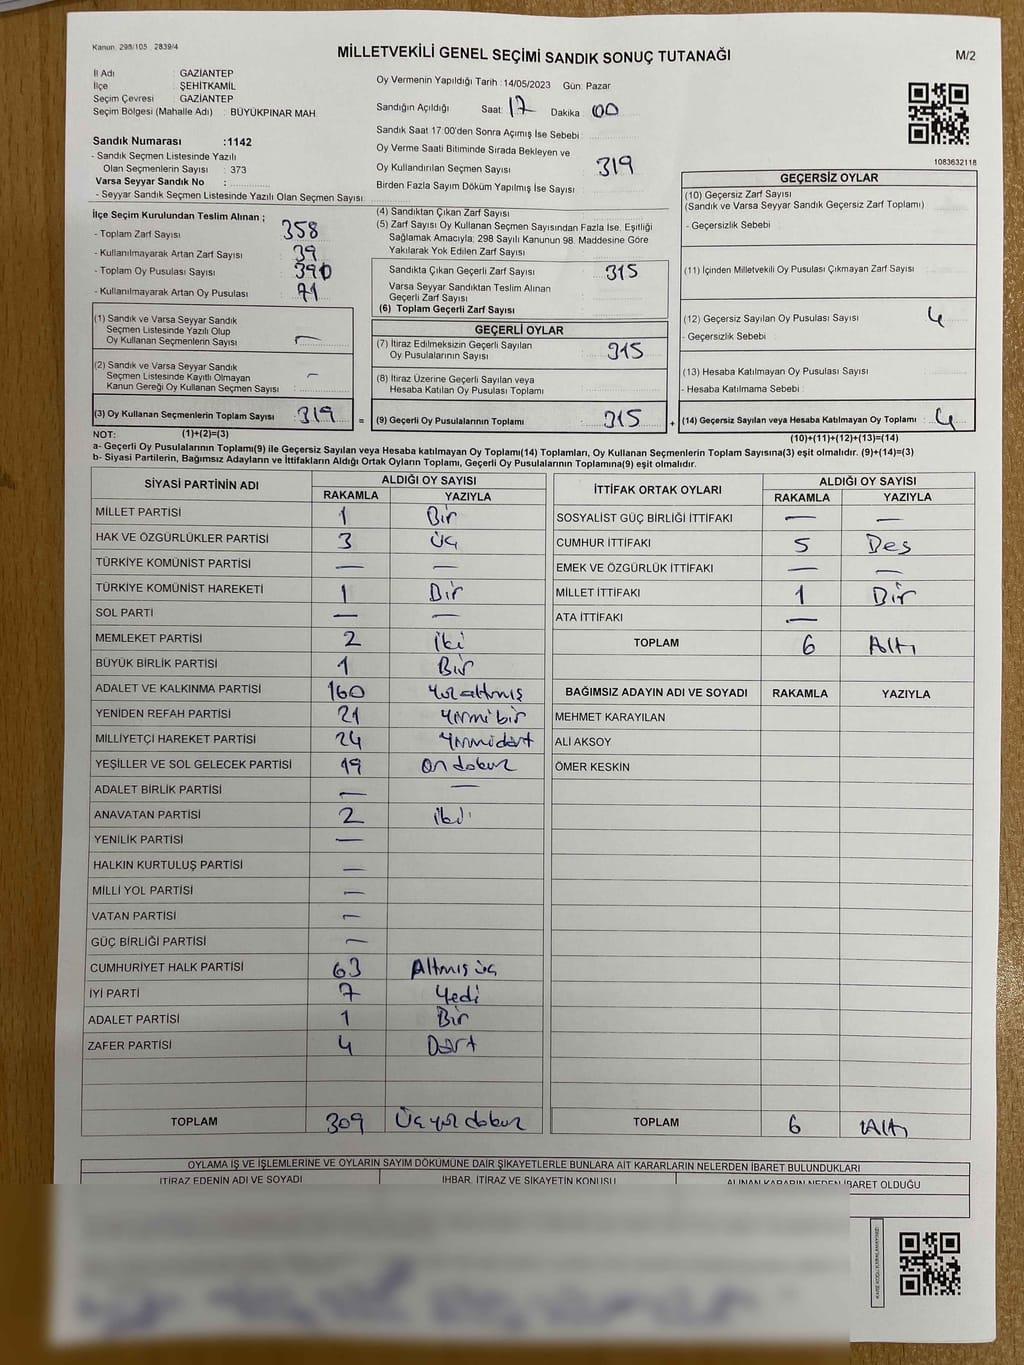 Kanun. 298/105 2839/4
MİLLETVEKİLİ GENEL SEÇİMİ SANDIK SONUÇ TUTANAĞI
M/2
İl Adı : GAZİANTEP
İlçe : ŞEHİTKAMİL
Seçim Çevresi : GAZİANTEP
Seçim Bölgesi (Mahalle Adı) : BÜYÜKPINAR MAH
Sandık Numarası :1142
- Sandık Seçmen Listesinde Yazılı
Olan Seçmenlerin Sayısı : 373
Varsa Seyyar Sandık No :
- Seyyar Sandık Seçmen Listesinde Yazılı Olan Seçmen Sayısı:
Oy Vermenin Yapıldığı Tarih : 14/05/2023 Gün: Pazar
Sandığın Açıldığı Saat: 17 Dakika: 00
Sandık Saat 17:00'den Sonra Açımış İse Sebebi :
Oy Verme Saati Bitiminde Sırada Bekleyen ve
Oy Kullandırılan Seçmen Sayısı : 319
Birden Fazla Sayım Döküm Yapılmış İse Sayısı :
1083632118
İlçe Seçim Kurulundan Teslim Alınan ;
- Toplam Zarf Sayısı : 358
- Kullanılmayarak Artan Zarf Sayısı : 39
- Toplam Oy Pusulası Sayısı : 390
- Kullanılmayarak Artan Oy Pusulası : 71
(1) Sandık ve Varsa Seyyar Sandık
Seçmen Listesinde Yazılı Olup
Oy Kullanan Seçmenlerin Sayısı : —
(2) Sandık ve Varsa Seyyar Sandık
Seçmen Listesinde Kayıtlı Olmayan
Kanun Gereği Oy Kullanan Seçmen Sayısı : —
(3) Oy Kullanan Seçmenlerin Toplam Sayısı : 319
(1)+(2)=(3)
(4) Sandıktan Çıkan Zarf Sayısı :
(5) Zarf Sayısı Oy Kullanan Seçmen Sayısından Fazla İse, Eşitliği
Sağlamak Amacıyla; 298 Sayılı Kanunun 98. Maddesine Göre
Yakılarak Yok Edilen Zarf Sayısı :
Sandıkta Çıkan Geçerli Zarf Sayısı : 315
Varsa Seyyar Sandıktan Teslim Alınan
Geçerli Zarf Sayısı :
(6) Toplam Geçerli Zarf Sayısı :
GEÇERLİ OYLAR
(7) İtiraz Edilmeksizin Geçerli Sayılan
Oy Pusulalarının Sayısı : 315
(8) İtiraz Üzerine Geçerli Sayılan veya
Hesaba Katılan Oy Pusulası Toplamı :
= (9) Geçerli Oy Pusulalarının Toplamı : 315 +
GEÇERSİZ OYLAR
(10) Geçersiz Zarf Sayısı
(Sandık ve Varsa Seyyar Sandık Geçersiz Zarf Toplamı) :
- Geçersizlik Sebebi :
(11) İçinden Milletvekili Oy Pusulası Çıkmayan Zarf Sayısı :
(12) Geçersiz Sayılan Oy Pusulası Sayısı : 4
- Geçersizlik Sebebi :
(13) Hesaba Katılmayan Oy Pusulası Sayısı :
- Hesaba Katılmama Sebebi :
(14) Geçersiz Sayılan veya Hesaba Katılmayan Oy Toplamı : 4
(10)+(11)+(12)+(13)=(14)
NOT:
a- Geçerli Oy Pusulalarının Toplamı(9) ile Geçersiz Sayılan veya Hesaba katılmayan Oy Toplamı(14) Toplamları, Oy Kullanan Seçmenlerin Toplam Sayısına(3) eşit olmalıdır. (9)+(14)=(3)
b- Siyasi Partilerin, Bağımsız Adayların ve İttifakların Aldığı Ortak Oyların Toplamı, Geçerli Oy Pusulalarının Toplamına(9) eşit olmalıdır.
SİYASİ PARTİNİN ADI ALDIĞI OY SAYISI
RAKAMLA YAZIYLA
MİLLET PARTİSİ 1 Bir
HAK VE ÖZGÜRLÜKLER PARTİSİ 3 üç
TÜRKİYE KOMÜNİST PARTİSİ — —
TÜRKİYE KOMÜNİST HAREKETİ 1 Bir
SOL PARTİ — —
MEMLEKET PARTİSİ 2 iki
BÜYÜK BİRLİK PARTİSİ 1 Bir
ADALET VE KALKINMA PARTİSİ 160 Yüzaltmış
YENİDEN REFAH PARTİSİ 21 Yirmi bir
MİLLİYETÇİ HAREKET PARTİSİ 24 Yirmidört
YEŞİLLER VE SOL GELECEK PARTİSİ 19 On dokuz
ADALET BİRLİK PARTİSİ — —
ANAVATAN PARTİSİ 2 iki
YENİLİK PARTİSİ —
HALKIN KURTULUŞ PARTİSİ —
MİLLİ YOL PARTİSİ —
VATAN PARTİSİ —
GÜÇ BİRLİĞİ PARTİSİ —
CUMHURİYET HALK PARTİSİ 63 Altmış üç
İYİ PARTİ 7 Yedi
ADALET PARTİSİ 1 Bir
ZAFER PARTİSİ 4 Dört
TOPLAM 309 Üç yüz dokuz
İTTİFAK ORTAK OYLARI ALDIĞI OY SAYISI
RAKAMLA YAZIYLA
SOSYALİST GÜÇ BİRLİĞİ İTTİFAKI — —
CUMHUR İTTİFAKI 5 Beş
EMEK VE ÖZGÜRLÜK İTTİFAKI — —
MİLLET İTTİFAKI 1 Bir
ATA İTTİFAKI —
TOPLAM 6 Altı
BAĞIMSIZ ADAYIN ADI VE SOYADI RAKAMLA YAZIYLA
MEHMET KARAYILAN
ALİ AKSOY
ÖMER KESKİN
TOPLAM 6 Altı
OYLAMA İŞ VE İŞLEMLERİNE VE OYLARIN SAYIM DÖKÜMÜNE DAİR ŞİKAYETLERLE BUNLARA AİT KARARLARIN NELERDEN İBARET BULUNDUKLARI
İTİRAZ EDENİN ADI VE SOYADI İHBAR, İTİRAZ VE ŞİKAYETİN KONUSU ALINAN KARARIN NEDEN İBARET OLDUĞU